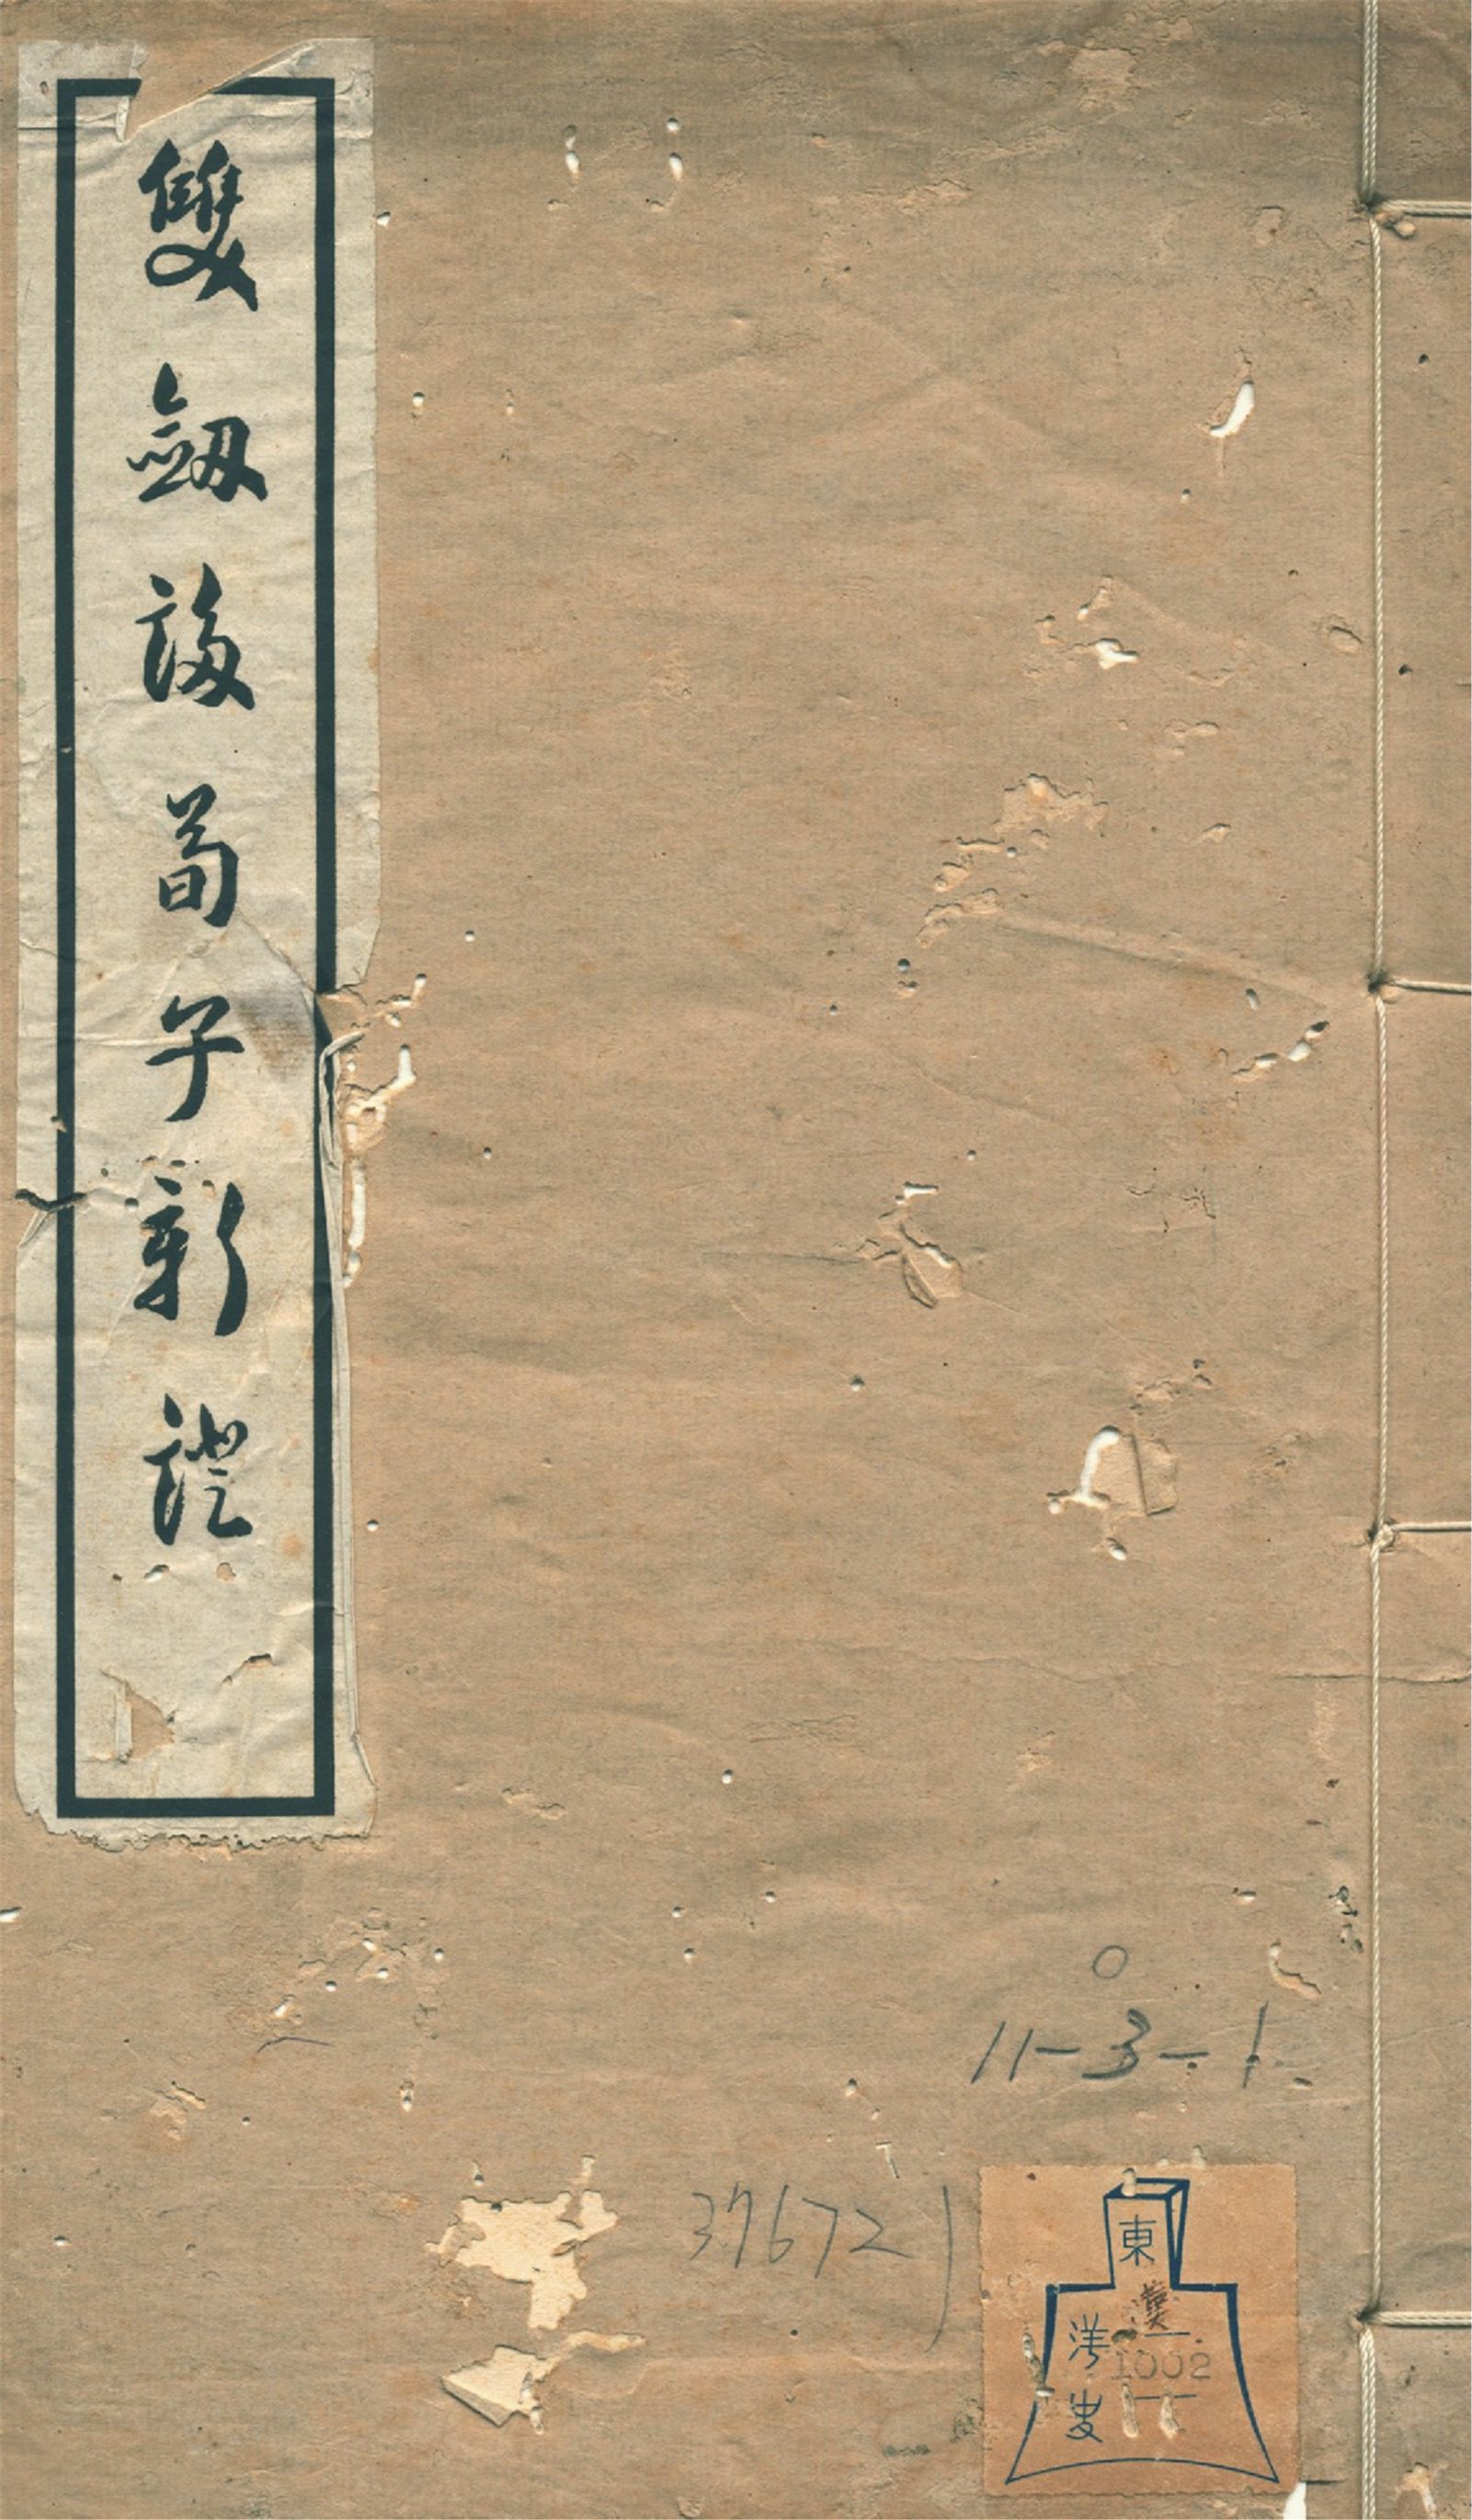 雙劒誃荀子新證
11-3-1
37672
東
漢
洋
1002
史